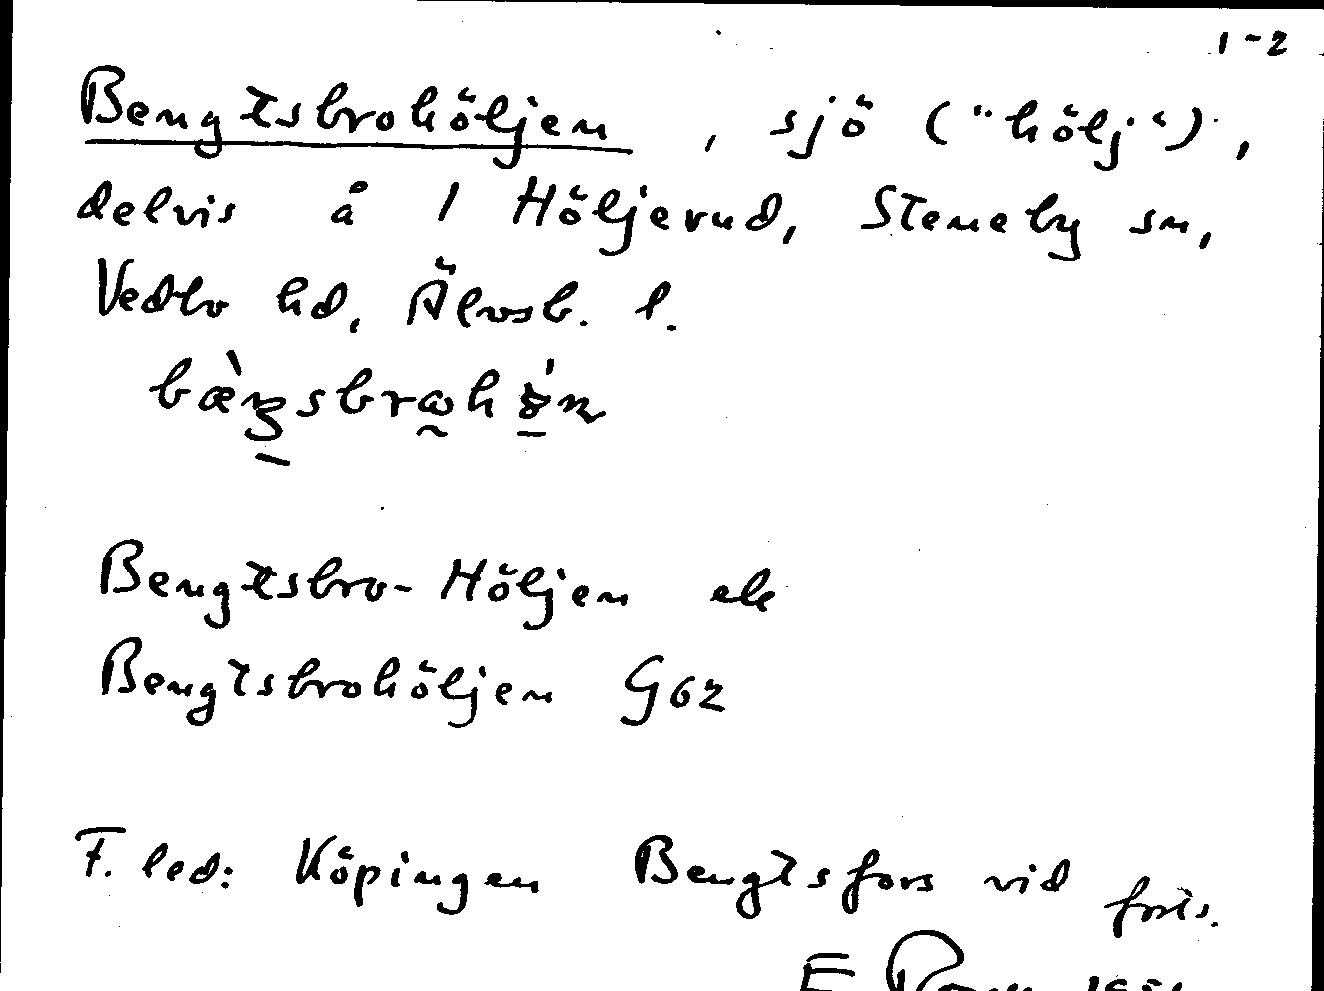 1-2
Bengtsbrohöljen, sjö ("hölj"),
delvis å 1 Höljerud, Steneby sn,
Vedbo hd, Älvsb. l.
Bengtsbro-Höljen ek
Bengtsbrohöljen G62
F. led: Köpingen Bengtsfors vid forts.